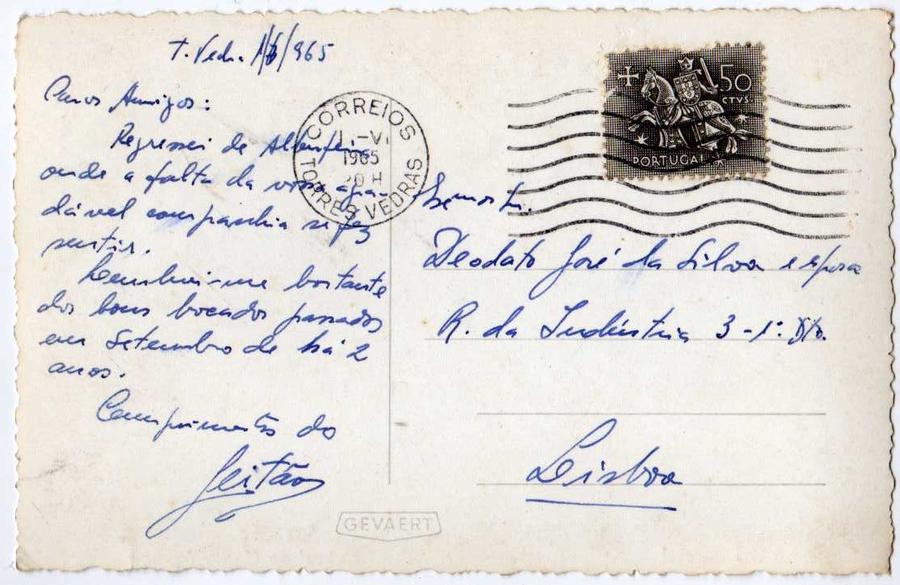 T. Vedr. 1/6/965
Caros Amigos:
Regressei de Albufeira
onde a falta da vossa agra-
dável companhia se fez
sentir.
Lembrei-me bastante
dos bons bocados passados
em Setembro de há 2
anos.
Cumprimentos do
Leitão
CORREIOS
1.-VI
1965
20H
TORRES VEDRAS
50
CTVS.
PORTUGAL
Deodato José da Silva e esposa
R. da Indústria 3-1º Dto.
Lisboa
GEVAERT